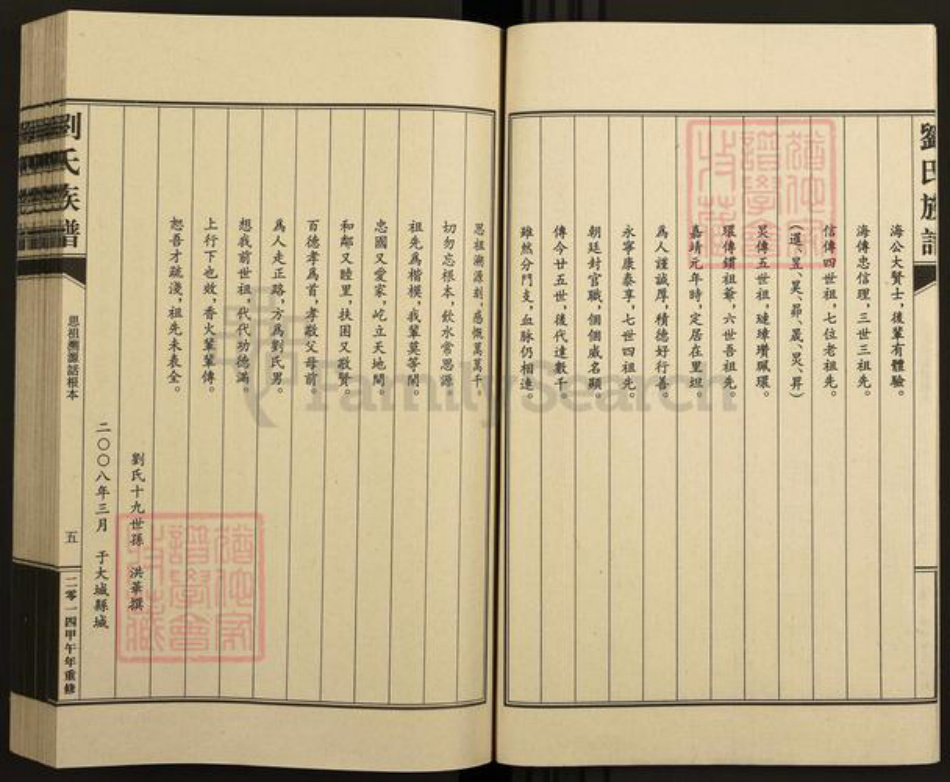 劉氏族譜
海公大賢士，後輩有體驗。
海傳忠信理，三世三祖先。
信傳四世祖，七位老祖先。
（暹、昱、昊、昴、晟、炅、昇）
炅傳五世祖，璉璋瓚珮環。
環傳鑽祖爺，六世吾祖先。
嘉靖元年時，定居在里坦。
爲人謹誠厚，積德好行善。
永寧康泰享，七世四祖先。
朝廷封官職，個個威名顯。
傳今廿五世，後代達數千。
雖然分門支，血脉仍相連。
思祖溯源刻，感慨萬萬千。
切勿忘根本，飲水常思源。
祖先爲楷模，我輩莫等閑。
忠國又愛家，屹立天地間。
和鄰又睦里，扶困又敬賢。
百德孝爲首，孝敬父母前。
爲人走正路，方爲劉氏男。
想我前世祖，代代功德滿。
上行下也效，香火輩輩傳。
恕吾才疏淺，祖先未表全。
劉氏十九世孫 洪華撰
二〇〇八年三月 于大城縣城
劉氏族譜
思祖溯源話根本
五
二零一四甲午年重修
FamilySearch